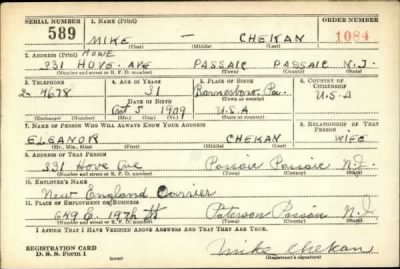 SERIAL NUMBER 1. NAME (Print) ORDER NUMBER
589 MIKE — CHEKAN 1084
(First) (Middle) (Last)
2. ADDRESS (Print) HOWE
331 HOVE. AVE PASSAIC PASSAIC N.J.
(Number and street or R. F. D. number) (Town) (County) (State)
3. TELEPHONE 4. AGE IN YEARS 5. PLACE OF BIRTH 6. COUNTRY OF CITIZENSHIP
2- 4678 31 Barnesboro, Pa. U.S.A
DATE OF BIRTH (Town or county)
Oct 5 1909 U.S.A
(Exchange) (Number) (Mo.) (Day) (Yr.) (State or country)
7. NAME OF PERSON WHO WILL ALWAYS KNOW YOUR ADDRESS 8. RELATIONSHIP OF THAT PERSON
ELEANOR CHEKAN WIFE
(Mr., Mrs., Miss) (First) (Middle) (Last)
9. ADDRESS OF THAT PERSON
331 Hove Ave Passaic Passaic N.J.
(Number and street or R. F. D. number) (Town) (County) (State)
10. EMPLOYER'S NAME
New England Carrier
11. PLACE OF EMPLOYMENT OR BUSINESS
649 E. 19th St Paterson Passaic N.J.
(Number and street or R. F. D. number) (Town) (County) (State)
I AFFIRM THAT I HAVE VERIFIED ABOVE ANSWERS AND THAT THEY ARE TRUE.
REGISTRATION CARD Mike Chekan
D. S. S. Form 1 (over) (Registrant's signature)